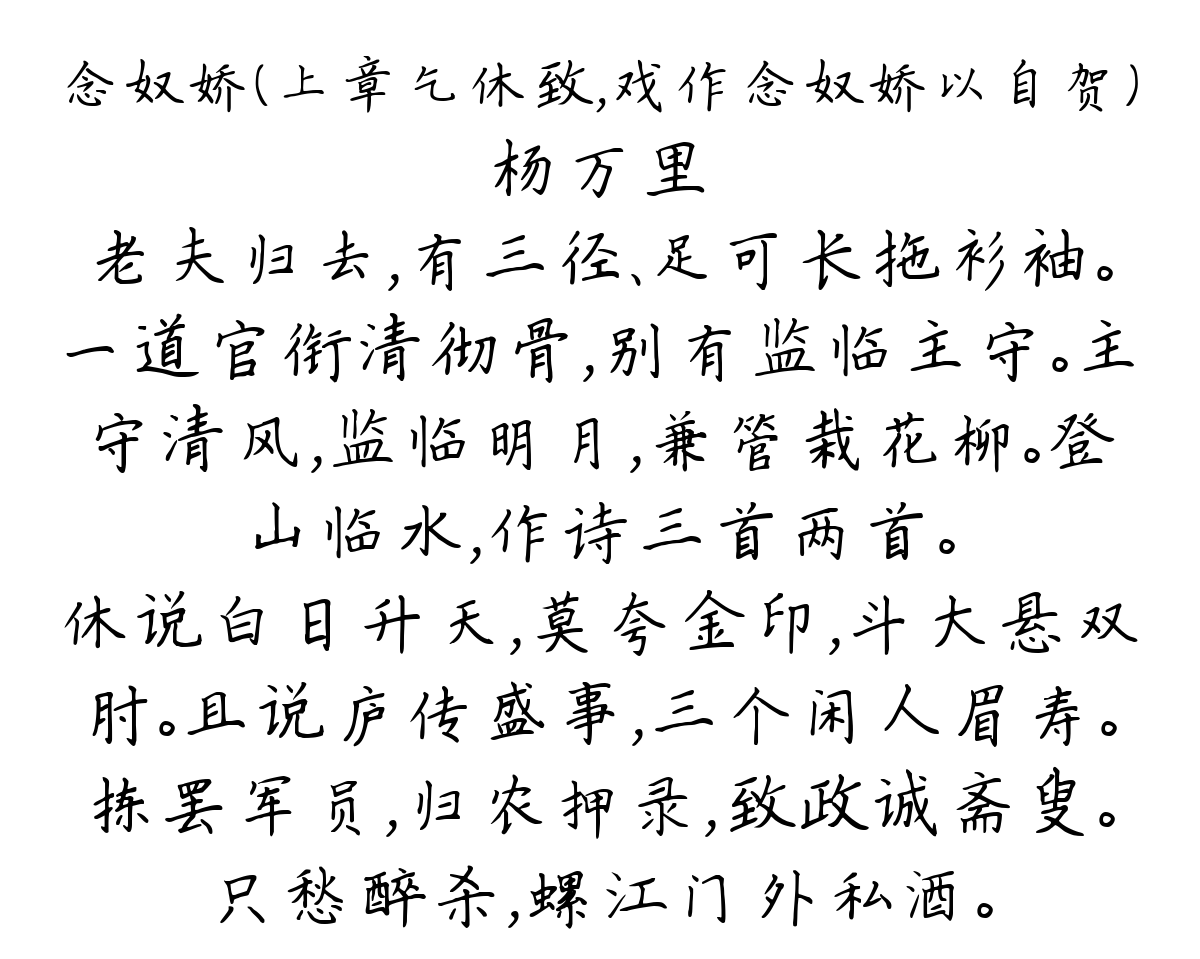 念奴娇(上章乞休致,戏作念奴娇以自贺)
杨万里
老夫归去,有三径、足可长拖衫袖。
一道官衔清彻骨,别有监临主守。主
守清风,监临明月,兼管栽花柳。登
山临水,作诗三首两首。
休说白日升天,莫夸金印,斗大悬双
肘。且说庐传盛事,三个闲人眉寿。
拣罢军员,归农押录,致政诚斋叟。
只愁醉杀,螺江门外私酒。